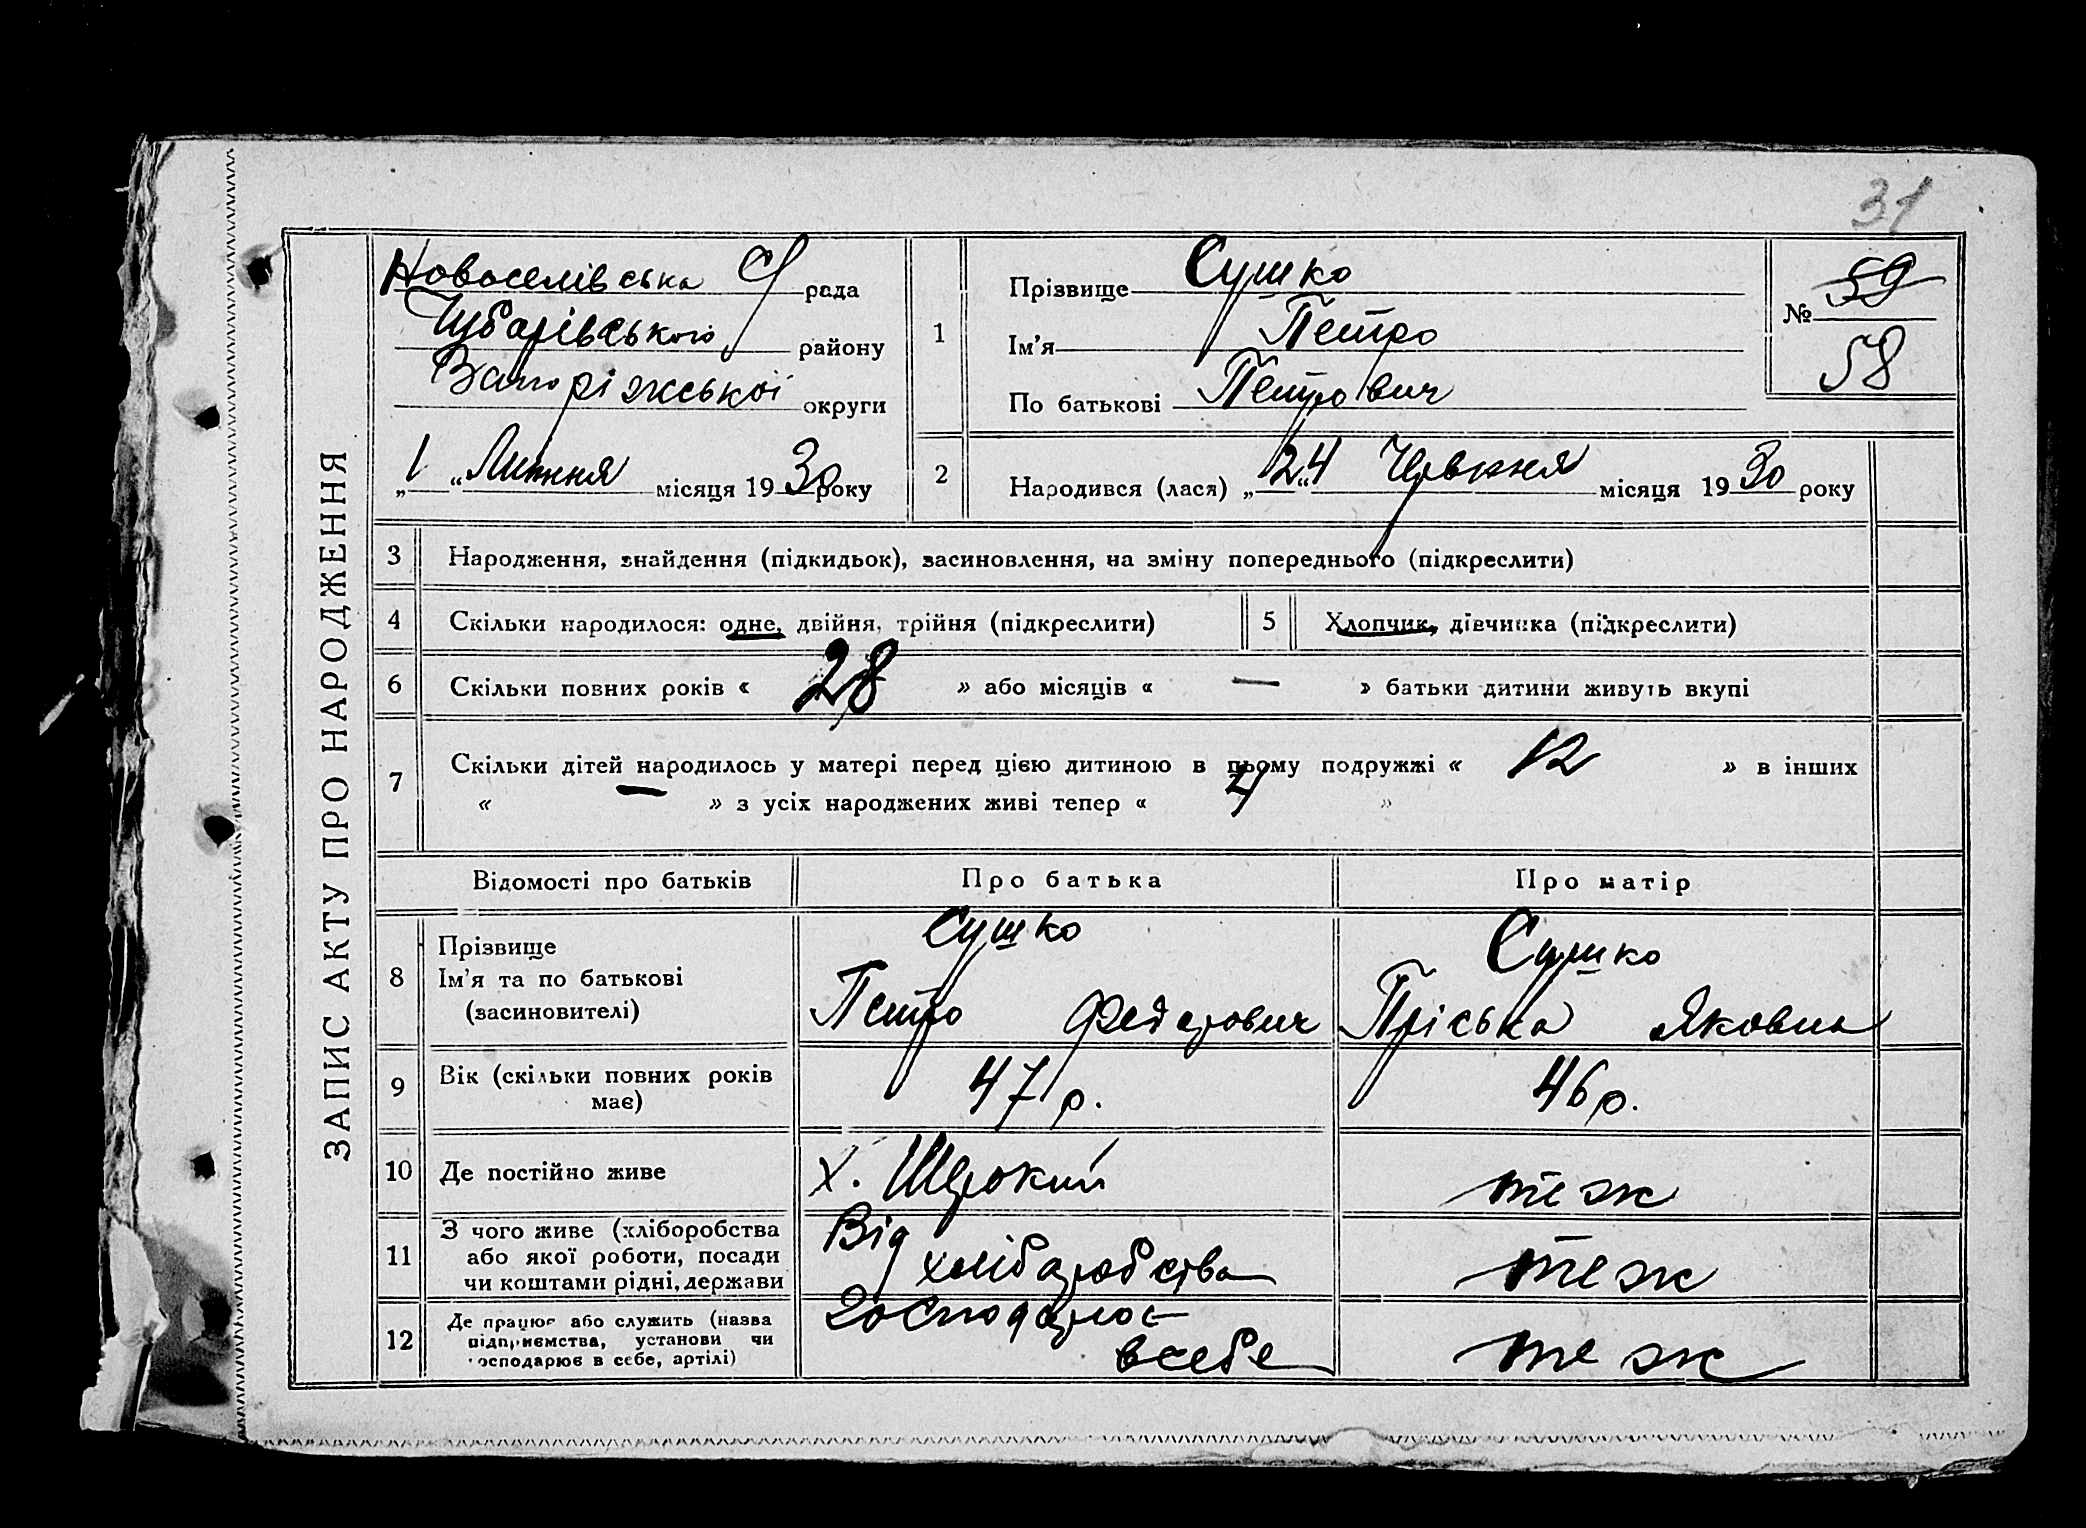 31
ЗАПИС АКТУ ПРО НАРОДЖЕННЯ
Новоселівська С/рада
Чубарівського району
Запоріжської округи
„1“ Липня місяця 1930 року
1
Прізвище Сушко
Ім'я Петро
По батькові Петрович
№ 59
58
2
Народився (лася) „24“ Червня місяця 1930 року
3 Народження, знайдення (підкидьок), засиновлення, на зміну попереднього (підкреслити)
4 Скільки народилося: одне, двійня, трійня (підкреслити) 5 Хлопчик, дівчинка (підкреслити)
6 Скільки повних років « 28 » або місяців « — » батьки дитини живуть вкупі
7 Скільки дітей народилось у матері перед цією дитиною в цьому подружжі « 12 » в інших
« — » з усіх народжених живі тепер « 4 »
Відомості про батьків Про батька Про матір
8 Прізвище
Ім'я та по батькові
(засиновителі)
Сушко
Петро Федорович
Сушко
Пріська Яковна
9 Вік (скільки повних років
має)
47 р.
46 р.
10 Де постійно живе х. Широкий теж
11 З чого живе (хліборобства
або якої роботи, посади
чи коштами рідні, держави
Від
хліборобства
теж
12 Де працює або служить (назва
підприємства, установи чи
господарює в себе, артілі)
Господарює
в себе
теж